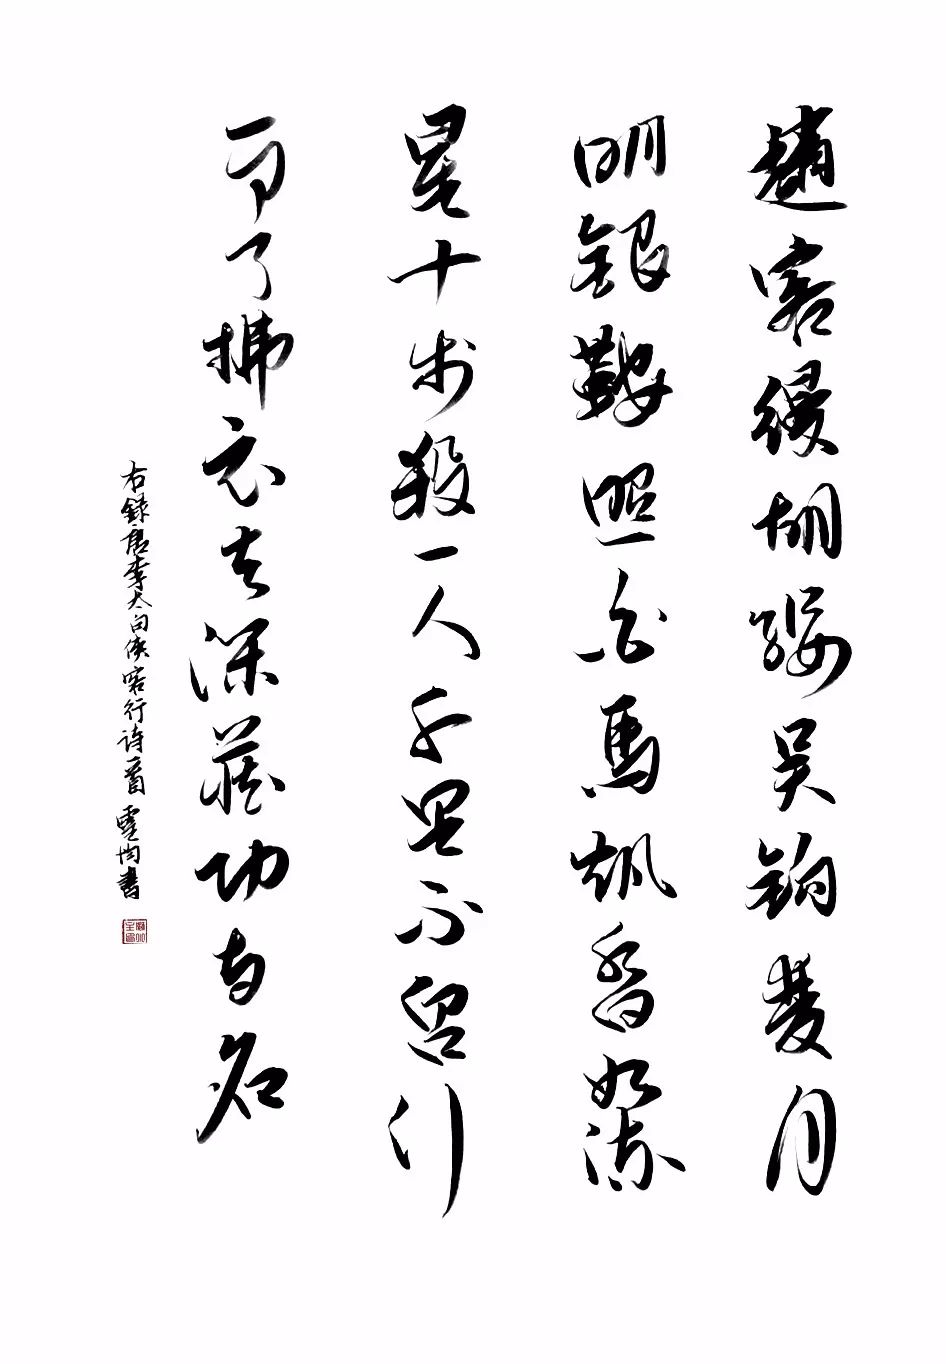 趙客縵胡纓吳鉤月
明銀鞍照白馬颯沓如流
星十步殺一人千里不留行
事了拂衣去深藏功與名
右錄唐李太白俠客行詩一首 靈均書